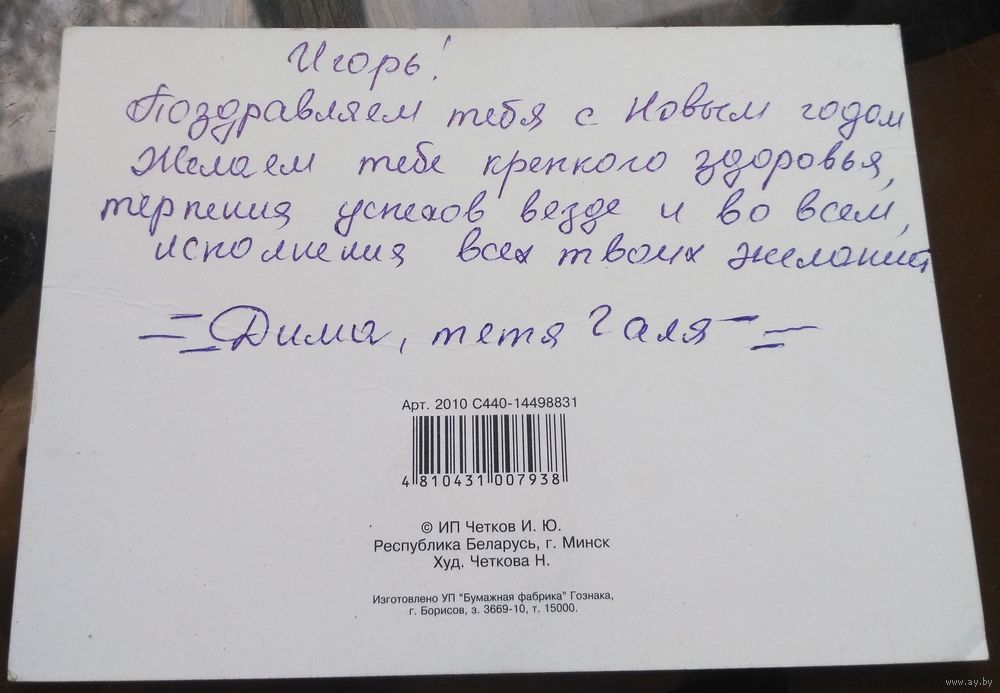 Игорь!
Поздравляем тебя с Новым годом
Желаем тебе крепкого здоровья,
терпения успехов везде и во всем,
исполнения всех твоих желаний
Дима, тетя Галя
Арт. 2010 С440-14498831
4 810431 007938
© ИП Четков И. Ю.
Республика Беларусь, г. Минск
Худ. Четкова Н.
Изготовлено УП "Бумажная фабрика" Гознака,
г. Борисов, з. 3669-10, т. 15000.
www.ay.by